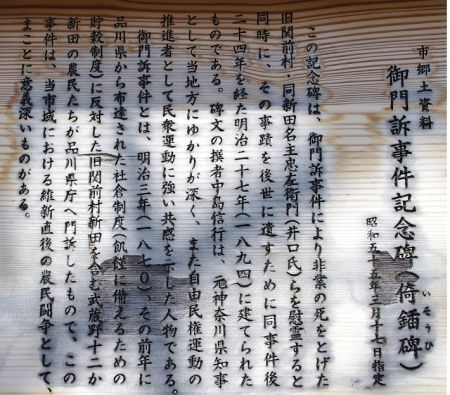 市郷土資料
御門訴事件記念碑(倚鍤碑)
いそうひ
昭和五十五年三月十七日指定
この記念碑は、御門訴事件により非業の死をとげた
旧関前村・同新田名主忠左衛門(井口氏)らを慰霊すると
同時に、その事蹟を後世に遺すために同事件後
二十四年を経た明治二十七年(一八九四)に建てられた
ものである。碑文の撰者中島信行は、元神奈川県知事
として当地方にゆかりが深く、また自由民権運動の
推進者として民衆運動に強い共感を示した人物である。
御門訴事件とは、明治三年(一八七〇)、その前年に
品川県から布達された社倉制度(飢饉に備えるための
貯穀制度)に反対した旧関前村新田を含む武蔵野十二か
新田の農民たちが品川県庁へ門訴したもので、この
事件は、当市域における維新直後の農民闘争として、
まことに意義深いものがある。